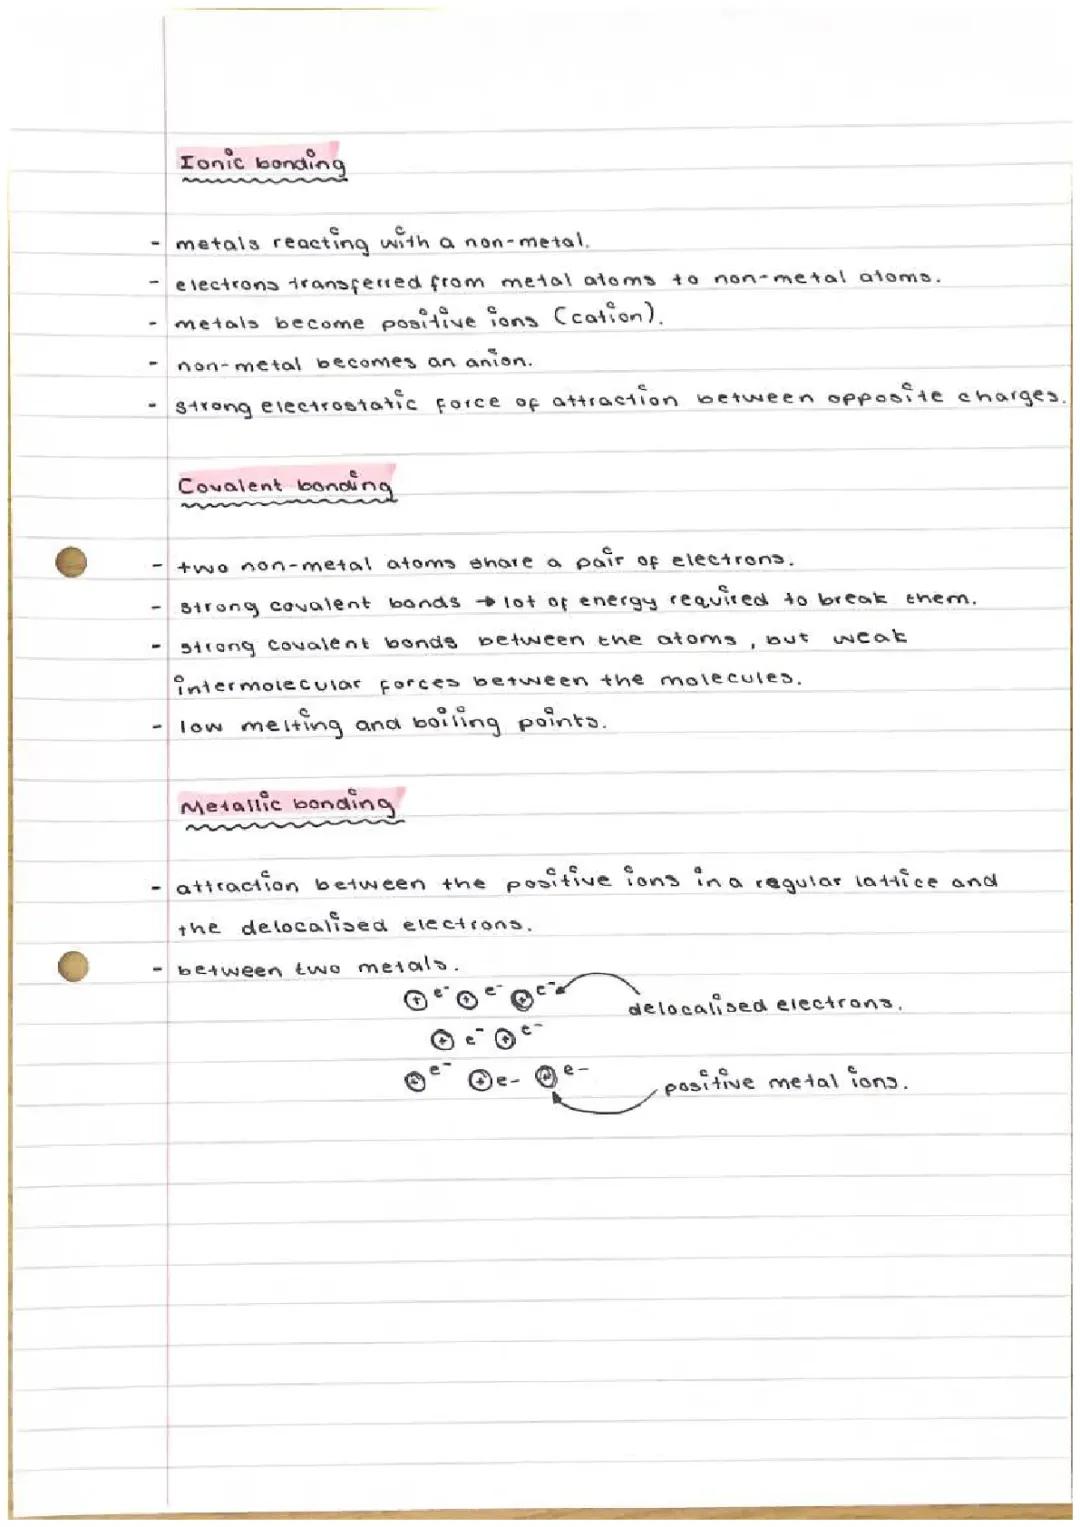 Ionic bonding
- metals reacting with a non-metal.
- electrons transferred from metal atoms to non-metal atoms.
- metals become positive ions (cation).
- non-metal becomes an anion.
- strong electrostatic force of attraction between opposite charges.
Covalent bonding
- two non-metal atoms share a pair of electrons.
- strong covalent bonds → lot of energy required to break them.
- strong covalent bonds between the atoms, but weak
intermolecular forces between the molecules.
- low melting and boiling points.
Metallic bonding
- attraction between the positive ions in a regular lattice and
the delocalised electrons.
- between two metals.
+ e- + e- + e-
delocalised electrons.
+ e- + e-
+ e- + e- + e-
positive metal ions.